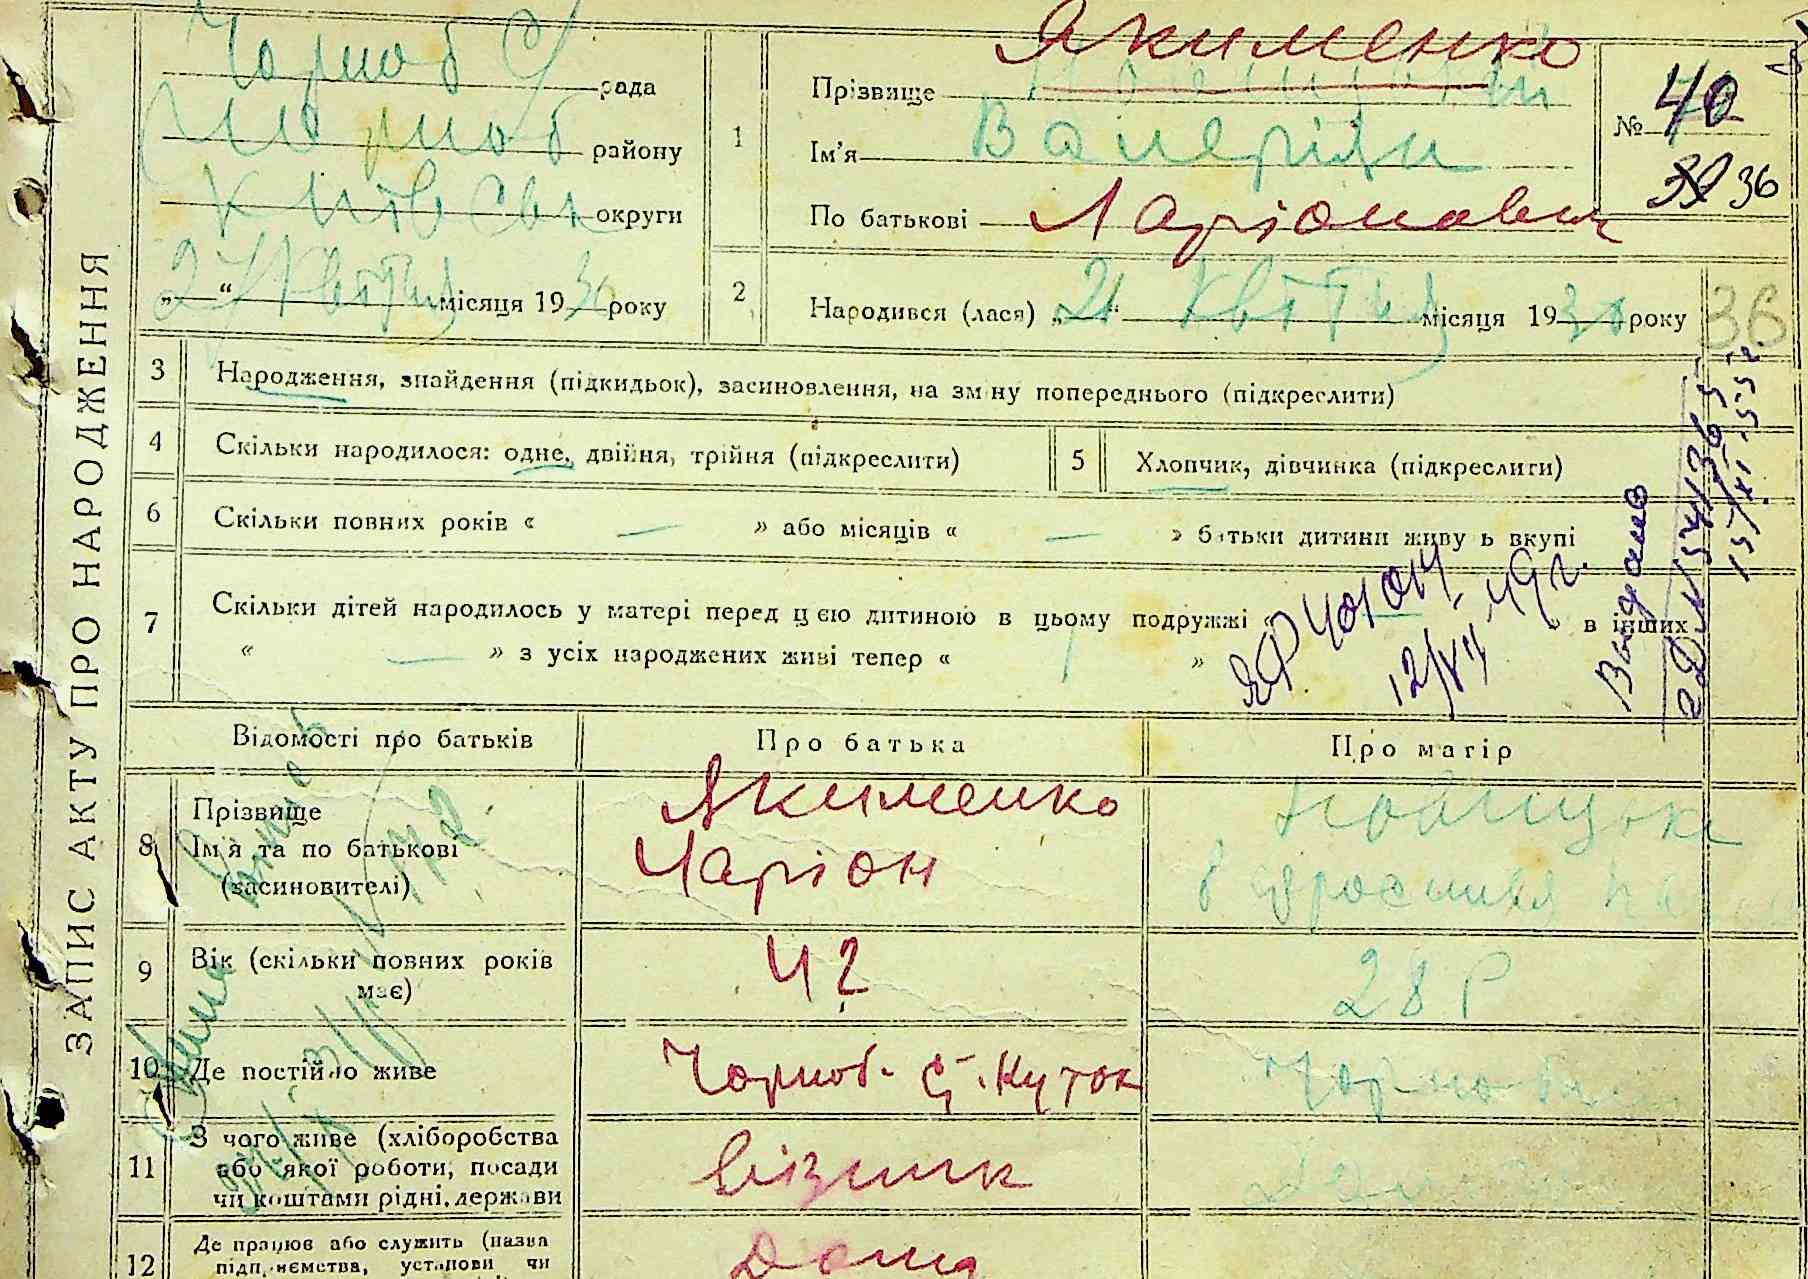 ЗАПИС АКТУ ПРО НАРОДЖЕННЯ
Чорноб рада
Чорноб району
Київськ округи
„27“ Квітня місяця 1930 року
1
Якименко
Прізвище
Ім'я Валеріян
По батькові Ларіонович
№ 40
36
2
Народився (лася) „21“ Квітня місяця 1930 року
36
3 Народження, знайдення (підкидьок), засиновлення, на зміну попереднього (підкреслити)
4 Скільки народилося: одне, двійня, трійня (підкреслити)
5 Хлопчик, дівчинка (підкреслити)
6 Скільки повних років « — » або місяців « — » батьки дитини живуть вкупі
7 Скільки дітей народилось у матері перед цією дитиною в цьому подружжі « — » в інших
« — » з усіх народжених живі тепер « 1 »
ЯФ 401014
12/VII 49 г.
Відомості про батьків
Про батька
Про матір
8 Прізвище
Ім'я та по батькові
(засиновителі)
Якименко
Ларіон
9 Вік (скільки повних років має)
42
28 р
10 Де постійно живе
Чорноб. С. Куток
Чорноб
11 З чого живе (хліборобства
або якої роботи, посади
чи коштами рідні, держави
візник
12 Де працює або служить (назва
підприємства, установи чи
Дома